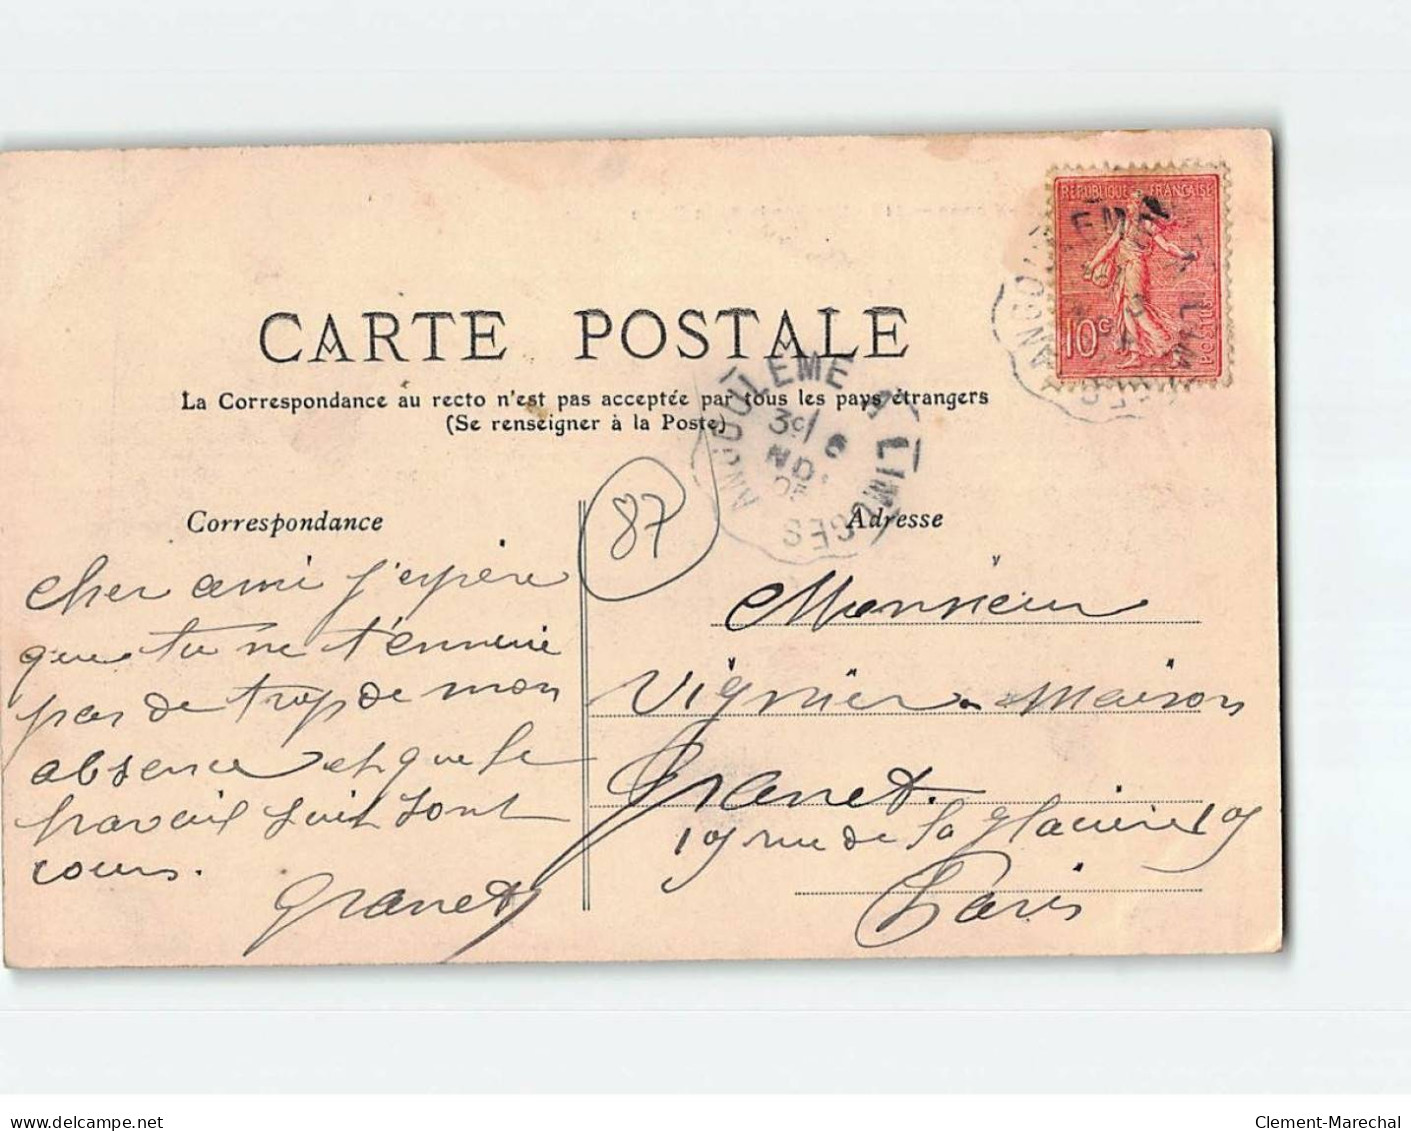 RÉPUBLIQUE FRANÇAISE
10c
POSTES
ANGOULÊME A LIMOGES
CARTE POSTALE
La Correspondance au recto n'est pas acceptée par tous les pays étrangers
(Se renseigner à la Poste)
ANGOULÊME A LIMOGES
3e/ 6
NO.
87
Correspondance
cher ami j'espère
que tu ne t'ennuie
pas de trop de mon
absence et que le
travail suit sont
cours.
Granet
Adresse
Monsieur
Vignier Maison
Granet.
19 rue de la glacière 19
Paris
www.delcampe.net
Clement-Marechal